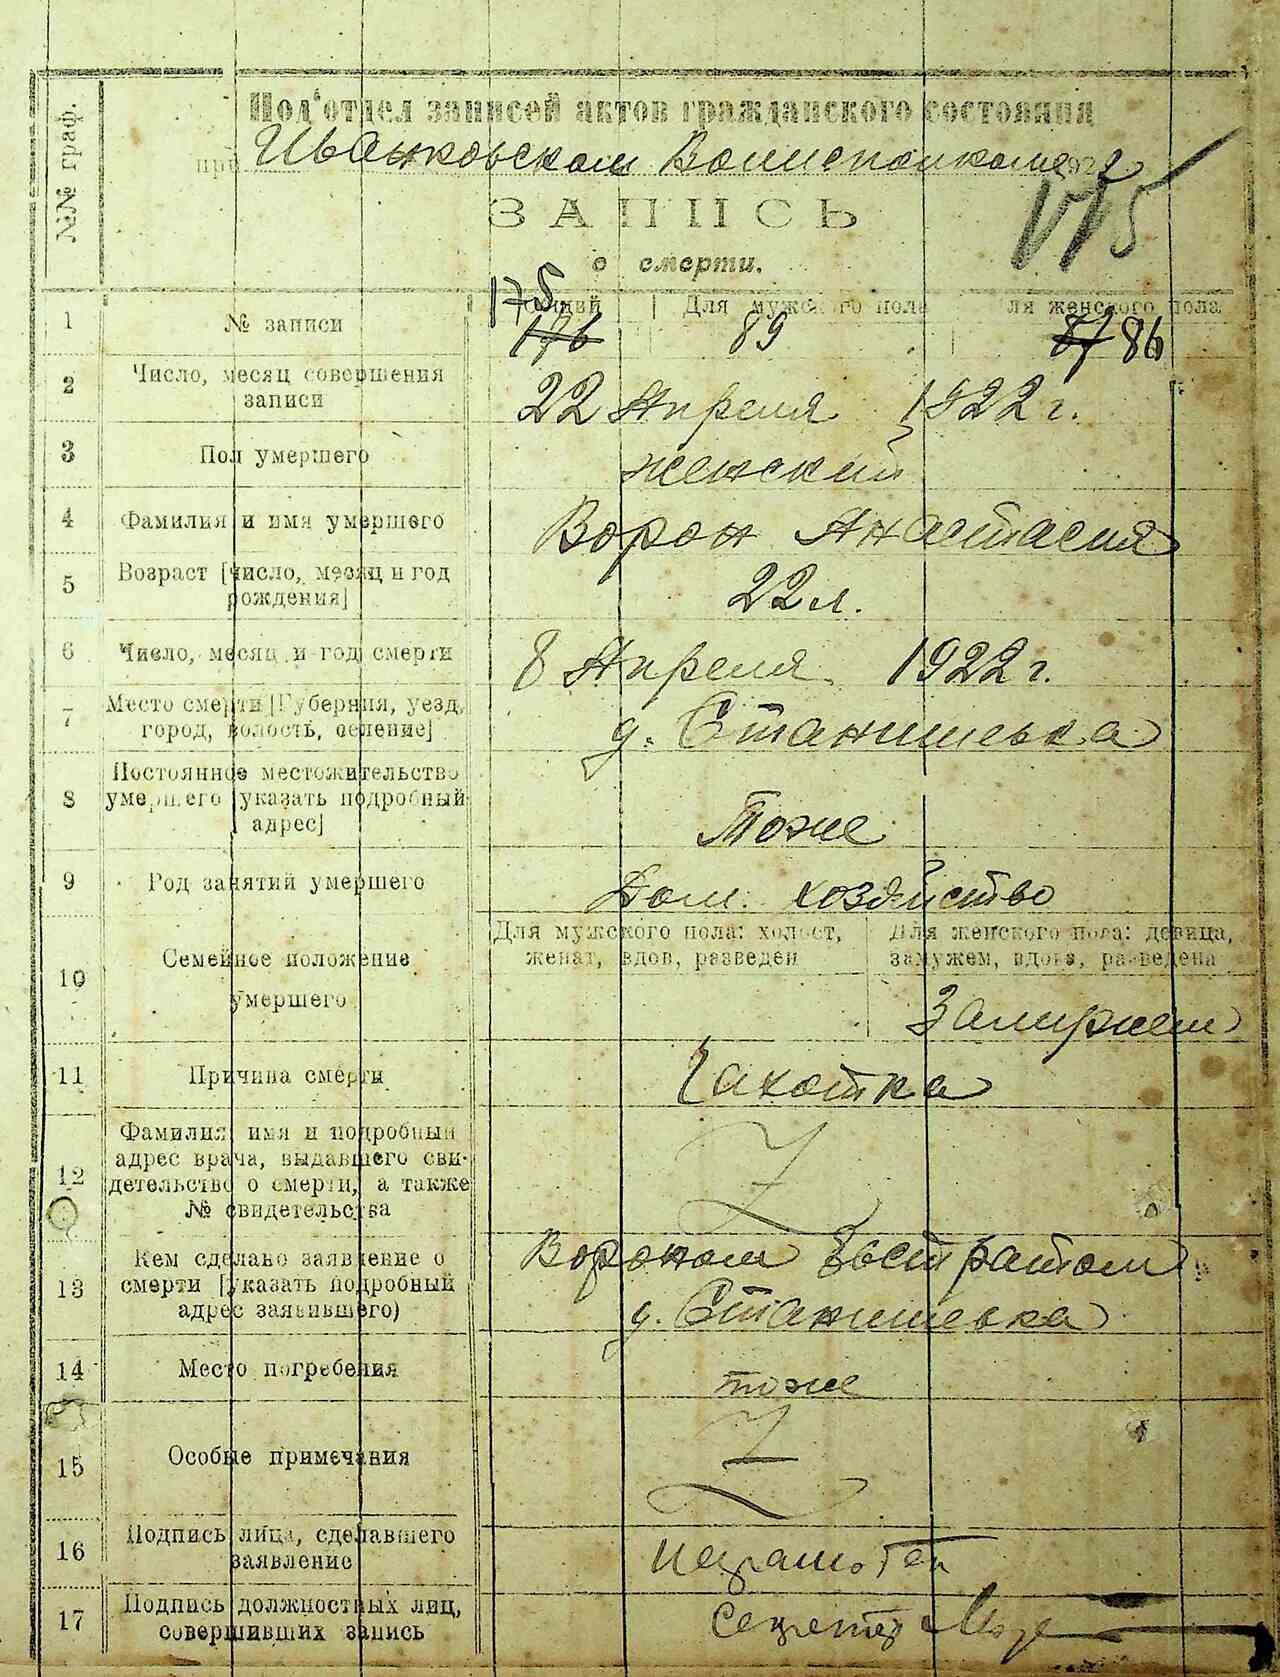 №№ граф.
Под'отдел записей актов гражданского состояния
при Иваньковском Волисполкоме 1922
ЗАПИСЬ
о смерти.
175
1 № записи Общий Для мужского пола Для женского пола
176 89 87 86
2 Число, месяц совершения записи
22 Апреля 1922 г.
3 Пол умершего
женский
4 Фамилия и имя умершего
Ворон Анастасия
5 Возраст [число, месяц и год рождения]
22 л.
6 Число, месяц и год смерти
8 Апреля 1922 г.
7 Место смерти [Губерния, уезд, город, волость, селение]
д. Станишевка
8 Постоянное местожительство умершего [указать подробный адрес]
Тоже
9 Род занятий умершего
Дом. хозяйство
10 Семейное положение умершего
Для мужского пола: холост, женат, вдов, разведен
Для женского пола: девица, замужем, вдова, разведена
Замужем
11 Причина смерти
Чахотка
12 Фамилия, имя и подробный адрес врача, выдавшего свидетельство о смерти, а также № свидетельства
13 Кем сделано заявление о смерти [указать подробный адрес заявившего)
Вороном
д. Станишевка
14 Место погребения
тоже
15 Особые примечания
16 Подпись лица, сделавшего заявление
неграмотен
17 Подпись должностных лиц, совершивших запись